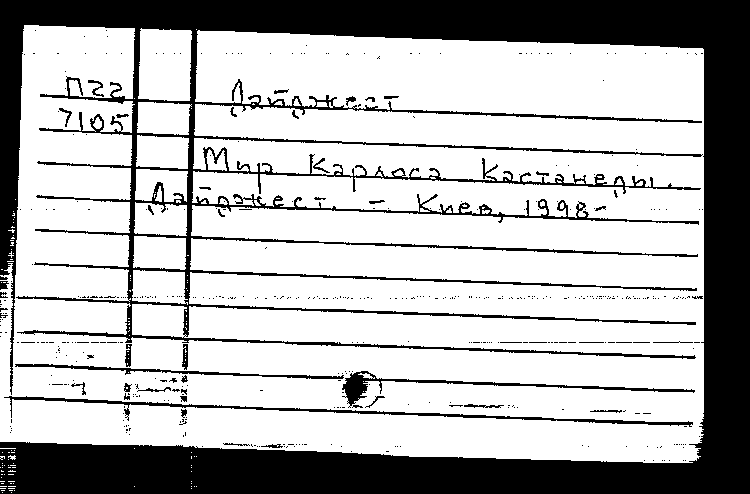 П22 Дайджест
7105
Мир Карлоса Кастанеды.
Дайджест. – Киев, 1998-